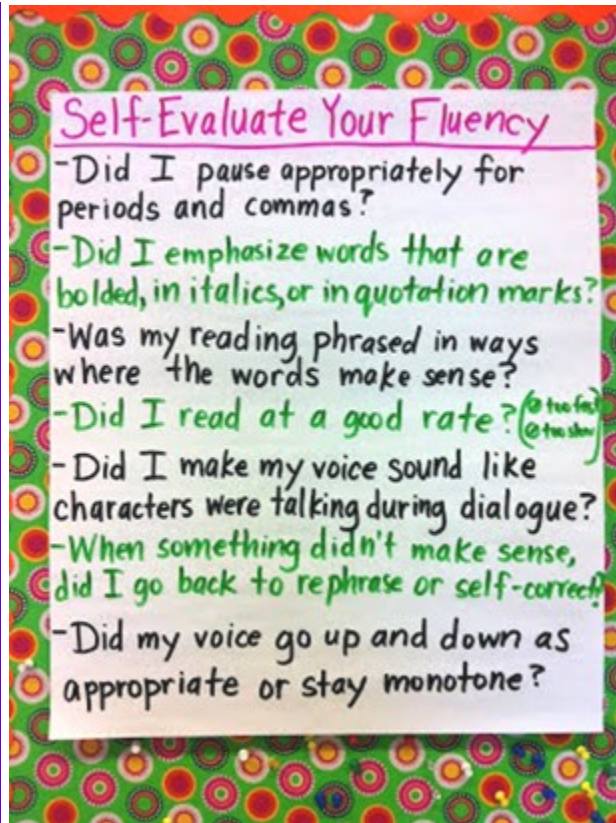 Self-Evaluate Your Fluency
-Did I pause appropriately for
periods and commas?
-Did I emphasize words that are
bolded, in italics, or in quotation marks?
-Was my reading phrased in ways
where the words make sense?
-Did I read at a good rate? (too fast
too slow)
-Did I make my voice sound like
characters were talking during dialogue?
-When something didn't make sense,
did I go back to rephrase or self-correct?
-Did my voice go up and down as
appropriate or stay monotone?